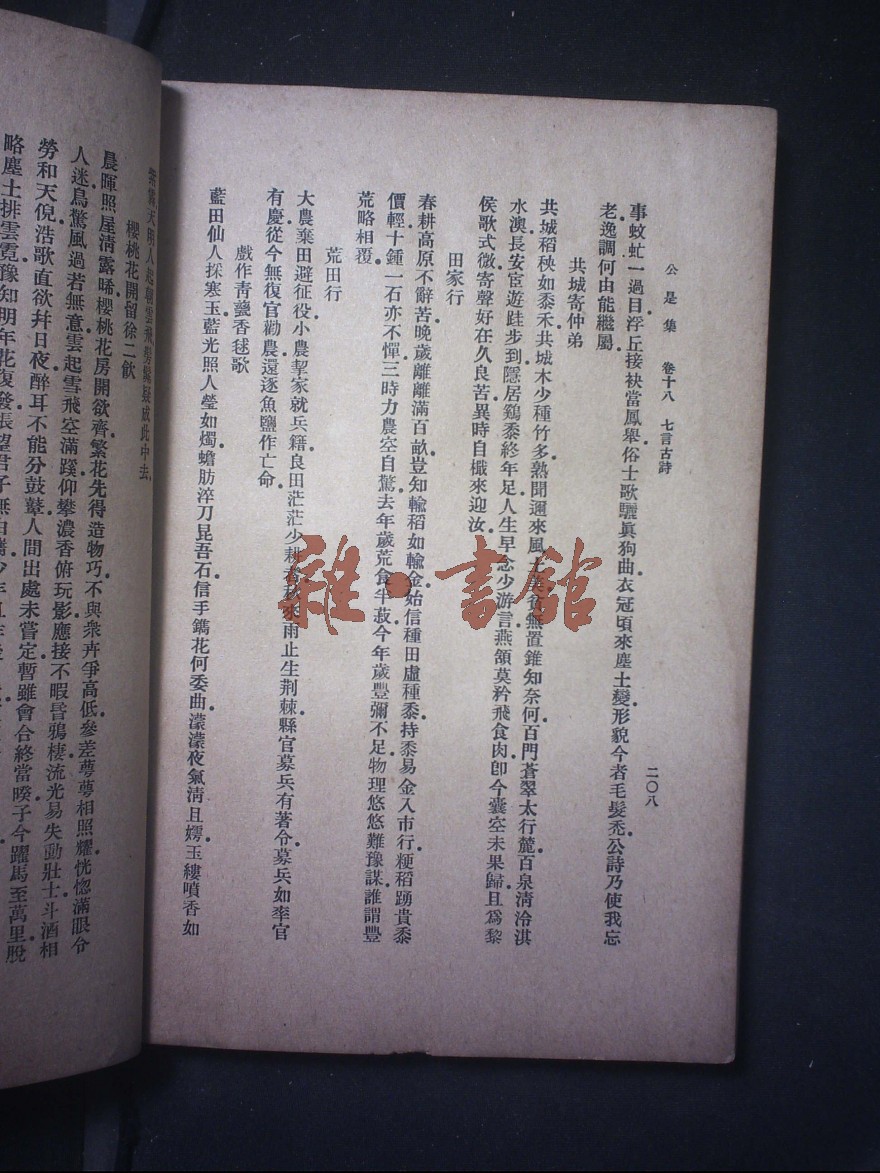 公是集 卷十八 七言古詩 二〇八
事蚊虻一過目浮丘接袂當鳳舉俗士歌驪眞狗曲衣冠頃來塵土變形貌今者毛髮禿公詩乃使我忘
老逸調何由能繼屬
共城寄仲弟
共城稻秧如黍禾共城木少種竹多熟聞邇來風土美爸無置錐知奈何百門蒼翠太行麓百泉淸泠淇
水澳長安臣遊跬步到隱居鷄黍終年足人生早念少游言燕頷莫矜飛食肉卽今囊空未果歸且爲黎
侯歌式微寄聲好在久良苦異時自檝來迎汝
田家行
春耕高原不辭苦晚歲離離滿百畝豈知輸稻如輸金始信種田虛種黍持黍易金入市行粳稻踴貴黍
價輕十鍾一石亦不憚三時力農空自驚去年歲荒食半菽今年歲豐彌不足物理悠悠難豫謀誰謂豐
荒略相覆
荒田行
大農棄田避征役小農挈家就兵籍良田茫茫少耕者秋來雨止生荆棘縣官募兵有著令募兵如率官
有慶從今無復官勸農還逐魚鹽作亡命
戲作靑甕香毬歌
藍田仙人採寒玉藍光照人瑩如燭蟾肪淬刀昆吾石信手鐫花何委曲濛濛夜氣淸且嫮玉縷噴香如
天明人起
櫻桃花開留徐二飮
晨暉照屋淸露晞櫻桃花房開欲齊繁花先得造物巧不與衆卉爭高低參差萼萼相照耀恍惚滿眼令
人迷鳥驚風過若無意雲起雪飛空滿蹊仰攀濃香俯玩影應接不暇昏鴉棲流光易失動壯士斗酒相
勞和天倪浩歌直欲幷日夜醉耳不能分鼓鼙人間出處未嘗定暫雖會合終當暌子今躍馬至萬里脫
略塵土排雲霓豫知明年花復發張望君子無
雜·書館